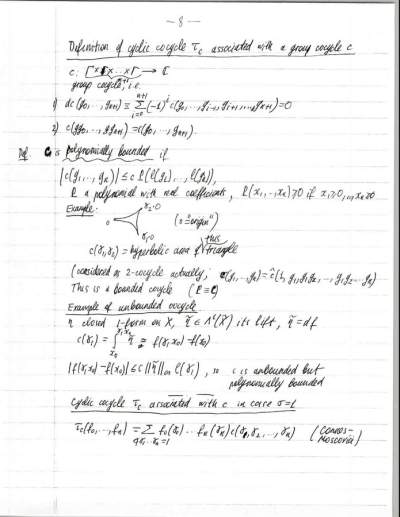 — 8 —
Definition of cyclic cocycle τ_c associated with a group cocycle c
c: Γ×Γ×...×Γ → ℂ
group cocycle, i.e.
1) dc(g₀,...,g_{n+1}) = Σ_{i=0}^{n+1} (-1)^i c(g₀,...,g_{i-1},g_{i+1},...,g_{n+1}) = 0
2) c(gg₀,...,gg_n) = c(g₀,...,g_n).
Def. c is polynomially bounded if
|c(g₁,...,g_n)| ≤ c R(l(g₁),...,l(g_n)),
R a polynomial with real coefficients, R(x₁,...,x_n) ≥ 0 if x₁≥0,...,x_n≥0
Example.
0 γ₂·0 γ₁·0 (0 = "origin")
c(γ₁,γ₂) = hyperbolic area of this triangle
(considered as 2-cocycle actually, c(g₁,...,g_n) = c̃(1, g₁, g₁g₂, ..., g₁g₂...g_n)
This is a bounded cocycle (R ≡ C)
Example of unbounded cocycle
η closed 1-form on X, η̃ ∈ Λ¹(X̃) its lift, η̃ = df
c(γ) = ∫_{x₀}^{γ·x₀} η̃ = f(γ·x₀) - f(x₀)
|f(γ·x₀) - f(x₀)| ≤ c ||η̃||_∞ l(γ), so c is unbounded but
polynomially bounded
Cyclic cocycle τ_c associated with c in case σ=1
τ_c(f₀,...,f_n) = Σ_{γ₀γ₁...γ_n=1} f₀(γ₀)...f_n(γ_n) c(γ₁,γ₂,...,γ_n) (Connes-
Moscovici)